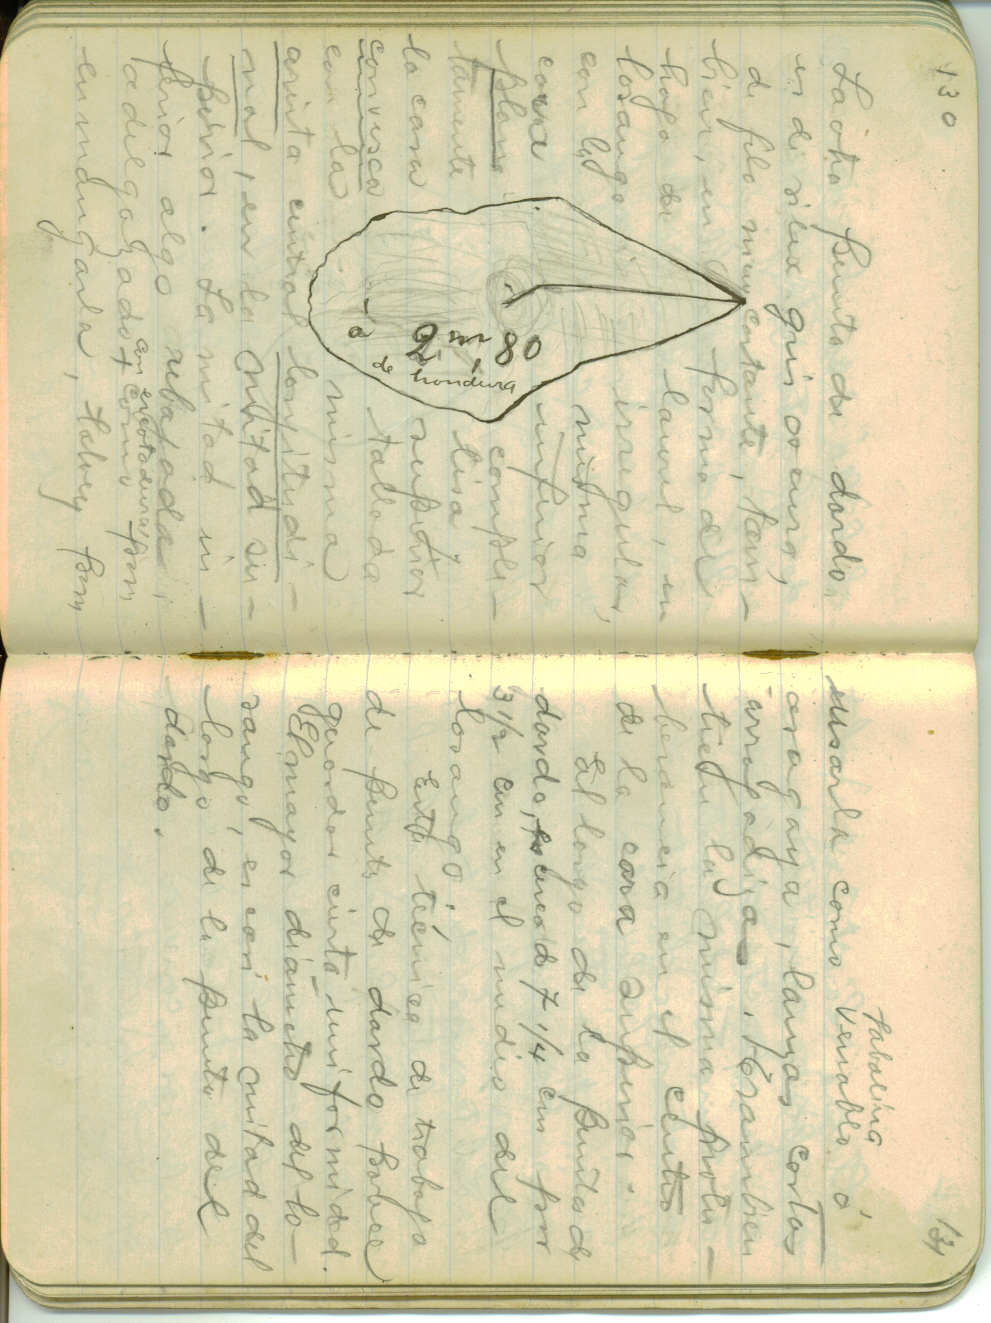 130
La otra punta de dardo,
es de silex gris oscuro,
de filo muy cortante, tam-
bien, en forma de
hoja de laurel, en
losange irregular,
con la misma
cara inferior
plana comple-
tamente lisa y
la cara superior
convexa tallada
con la misma
arista central longitudi-
nal, en la mitad su-
perior. La mitad in-
ferior algo rebajada,
adelgazada + como para
con escotadura
enmangarla, talvez para
2 m 80
de hondura
a
131
Jabalina
usarla como Venablo ó
azagaya, lanzas cortas
arrojadizas. Tambien
tiene la misma protu-
berancia en el centro
de la cara superior.
El largo de la punta de
dardo, es de 7 1/4 cm por
3 1/2 cm en el medio del
losange.
Esta técnica de trabajo
de punta de dardo parece
guardar cierta uniformidad.
El mayor diametro del lo-
sange, es casi la mitad del
largo, de la punta del
dardo.